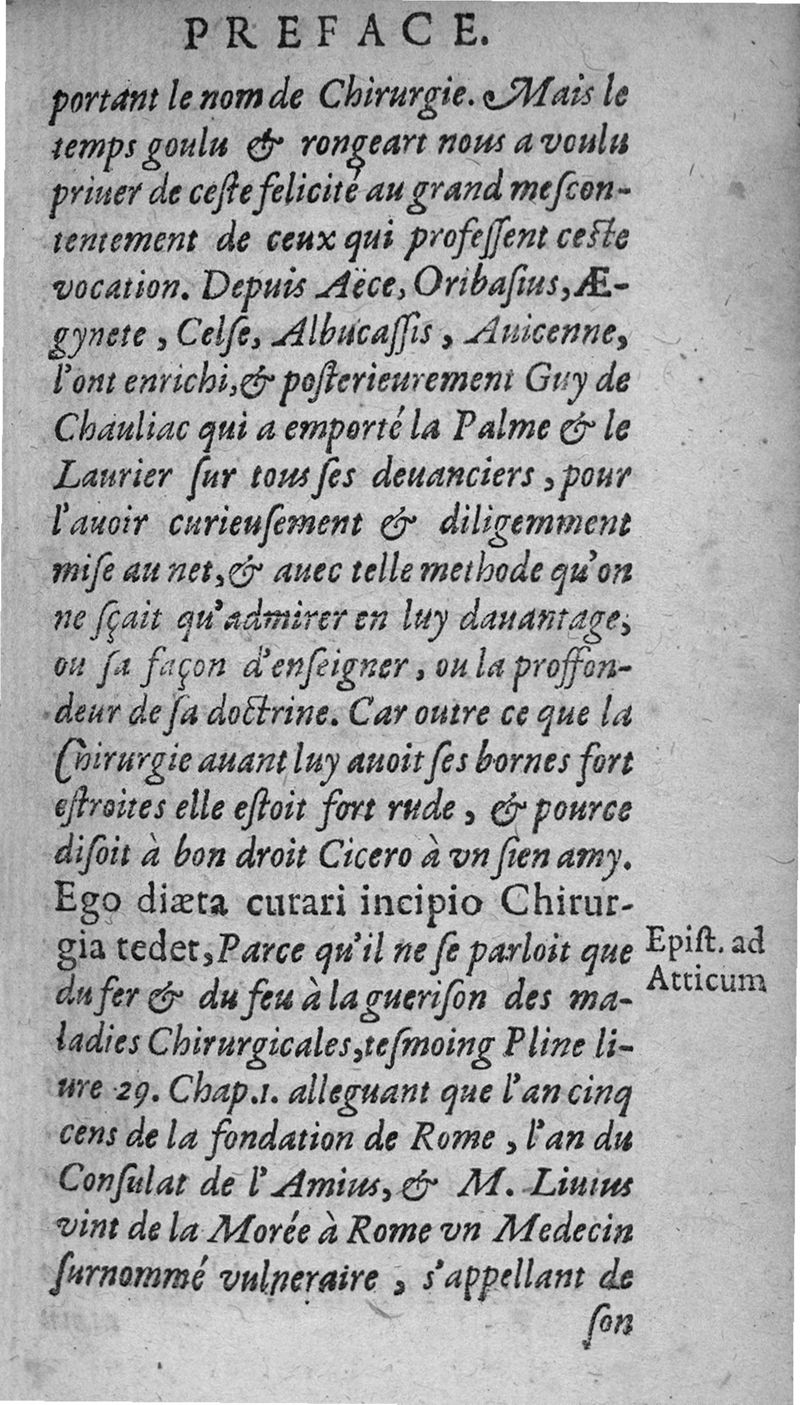 PREFACE.
portant le nom de Chirurgie. Mais le
temps goulu & rongeart nous a voulu
priuer de ceſte felicité au grand meſcon-
tentement de ceux qui profeſſent ceſte
vocation. Depuis Aëce, Oribaſius, Æ-
gynete, Celſe, Albucaſſis, Auicenne,
l'ont enrichi, & poſterieurement Guy de
Chauliac qui a emporté la Palme & le
Laurier ſur tous ſes deuanciers, pour
l'auoir curieuſement & diligemment
miſe au net, & auec telle methode qu'on
ne ſçait qu'admirer en luy dauantage,
ou ſa façon d'enſeigner, ou la proffon-
deur de ſa doctrine. Car outre ce que la
Chirurgie auant luy auoit ſes bornes fort
eſtroites elle eſtoit fort rude, & pource
diſoit à bon droit Cicero à vn ſien amy.
Ego diæta curari incipio Chirur-
gia tedet, Parce qu'il ne ſe parloit que
Epiſt. ad
Atticum
du fer & du feu à la gueriſon des ma-
ladies Chirurgicales, teſmoing Pline li-
ure 29. Chap.1. alleguant que l'an cinq
cens de la fondation de Rome, l'an du
Conſulat de l'Amius, & M. Liuius
vint de la Morée à Rome vn Medecin
ſurnommé vulneraire, s'appellant de
ſon